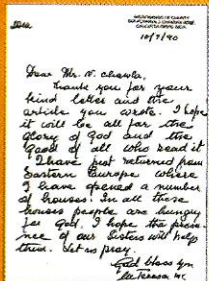 MISSIONARIES OF CHARITY
54A, A.J.C. BOSE ROAD
CALCUTTA 700016, INDIA
10/7/90
Dear Mr. N. Chawla,
Thank you for your
kind letter and the
article you wrote. I hope
it will be all for the
glory of God and the
good of all who read it
I have just returned from
Eastern Europe where
I have opened a number
of houses. In all these
houses people are hungry
for God. I hope the presen-
nce of our Sisters will help
them. Let us pray.
God bless you
M Teresa mc